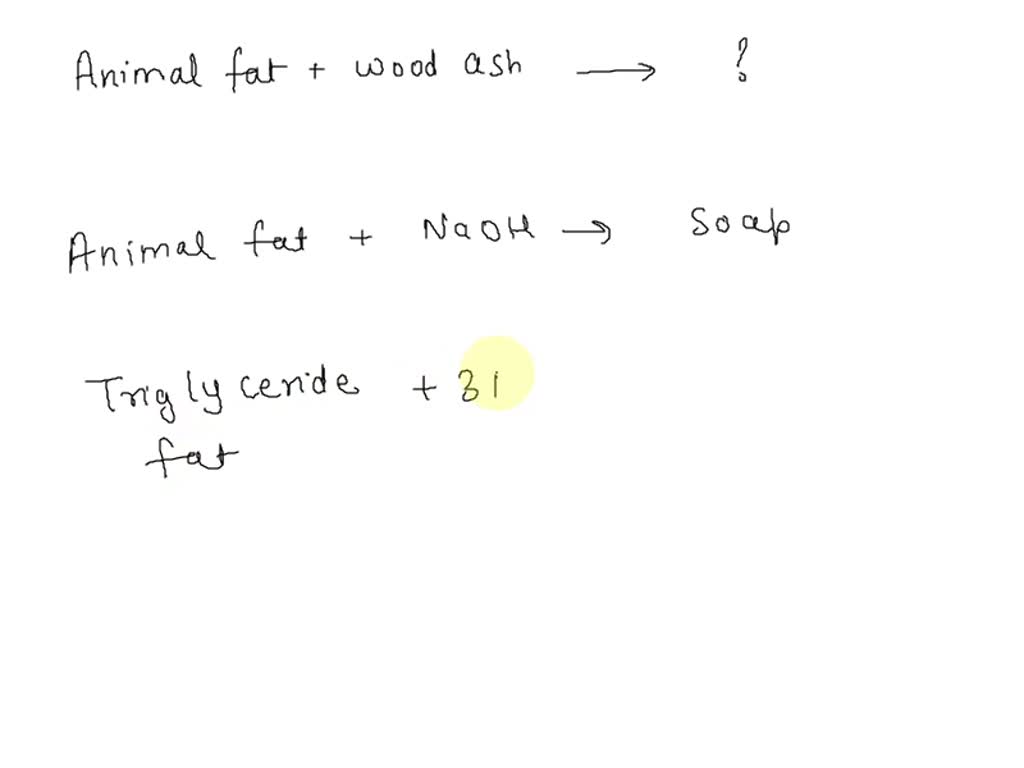 Animal fat + wood ash → ?
Animal fat + NaOH → Soap
Triglyceride + 3I
fat